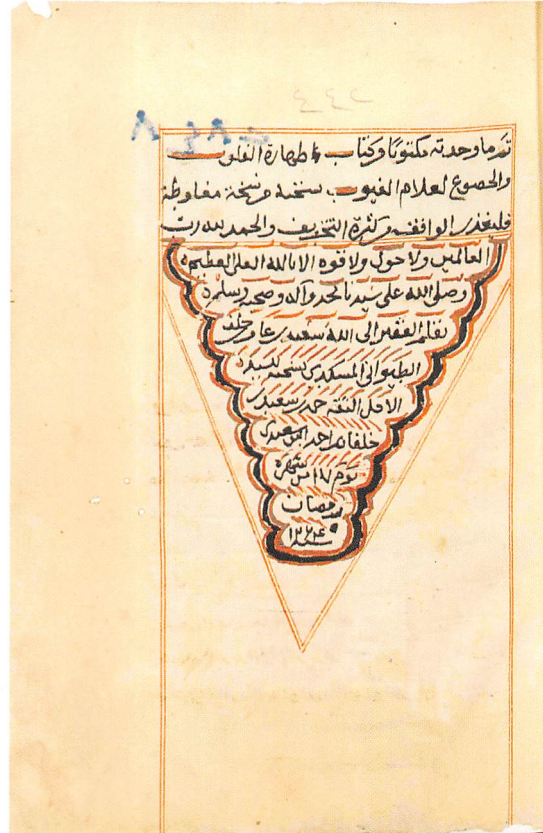 تم ما وجدته مكتوبا وكتاب طهارة القلوب
والخضوع لعلام الغيوب نسخته من نسخة مغلوطة
فليعذر الواقف من كثرة التحريف والحمد لله رب
العالمين ولا حول ولا قوة الا بالله العلي العظيم
وصلى الله على سيدنا محمد وآله وصحبه وسلم
بقلم الفقير الى الله سعيد بن عامر بن خلف
الطيواني المسكدي نسخته لسيده
الاجل الثقة حمد بن سعيد بن
خلفان بن احمد البوسعيدي
يوم ١٧ من شهر
رمضان
سنة ١٢٢٤